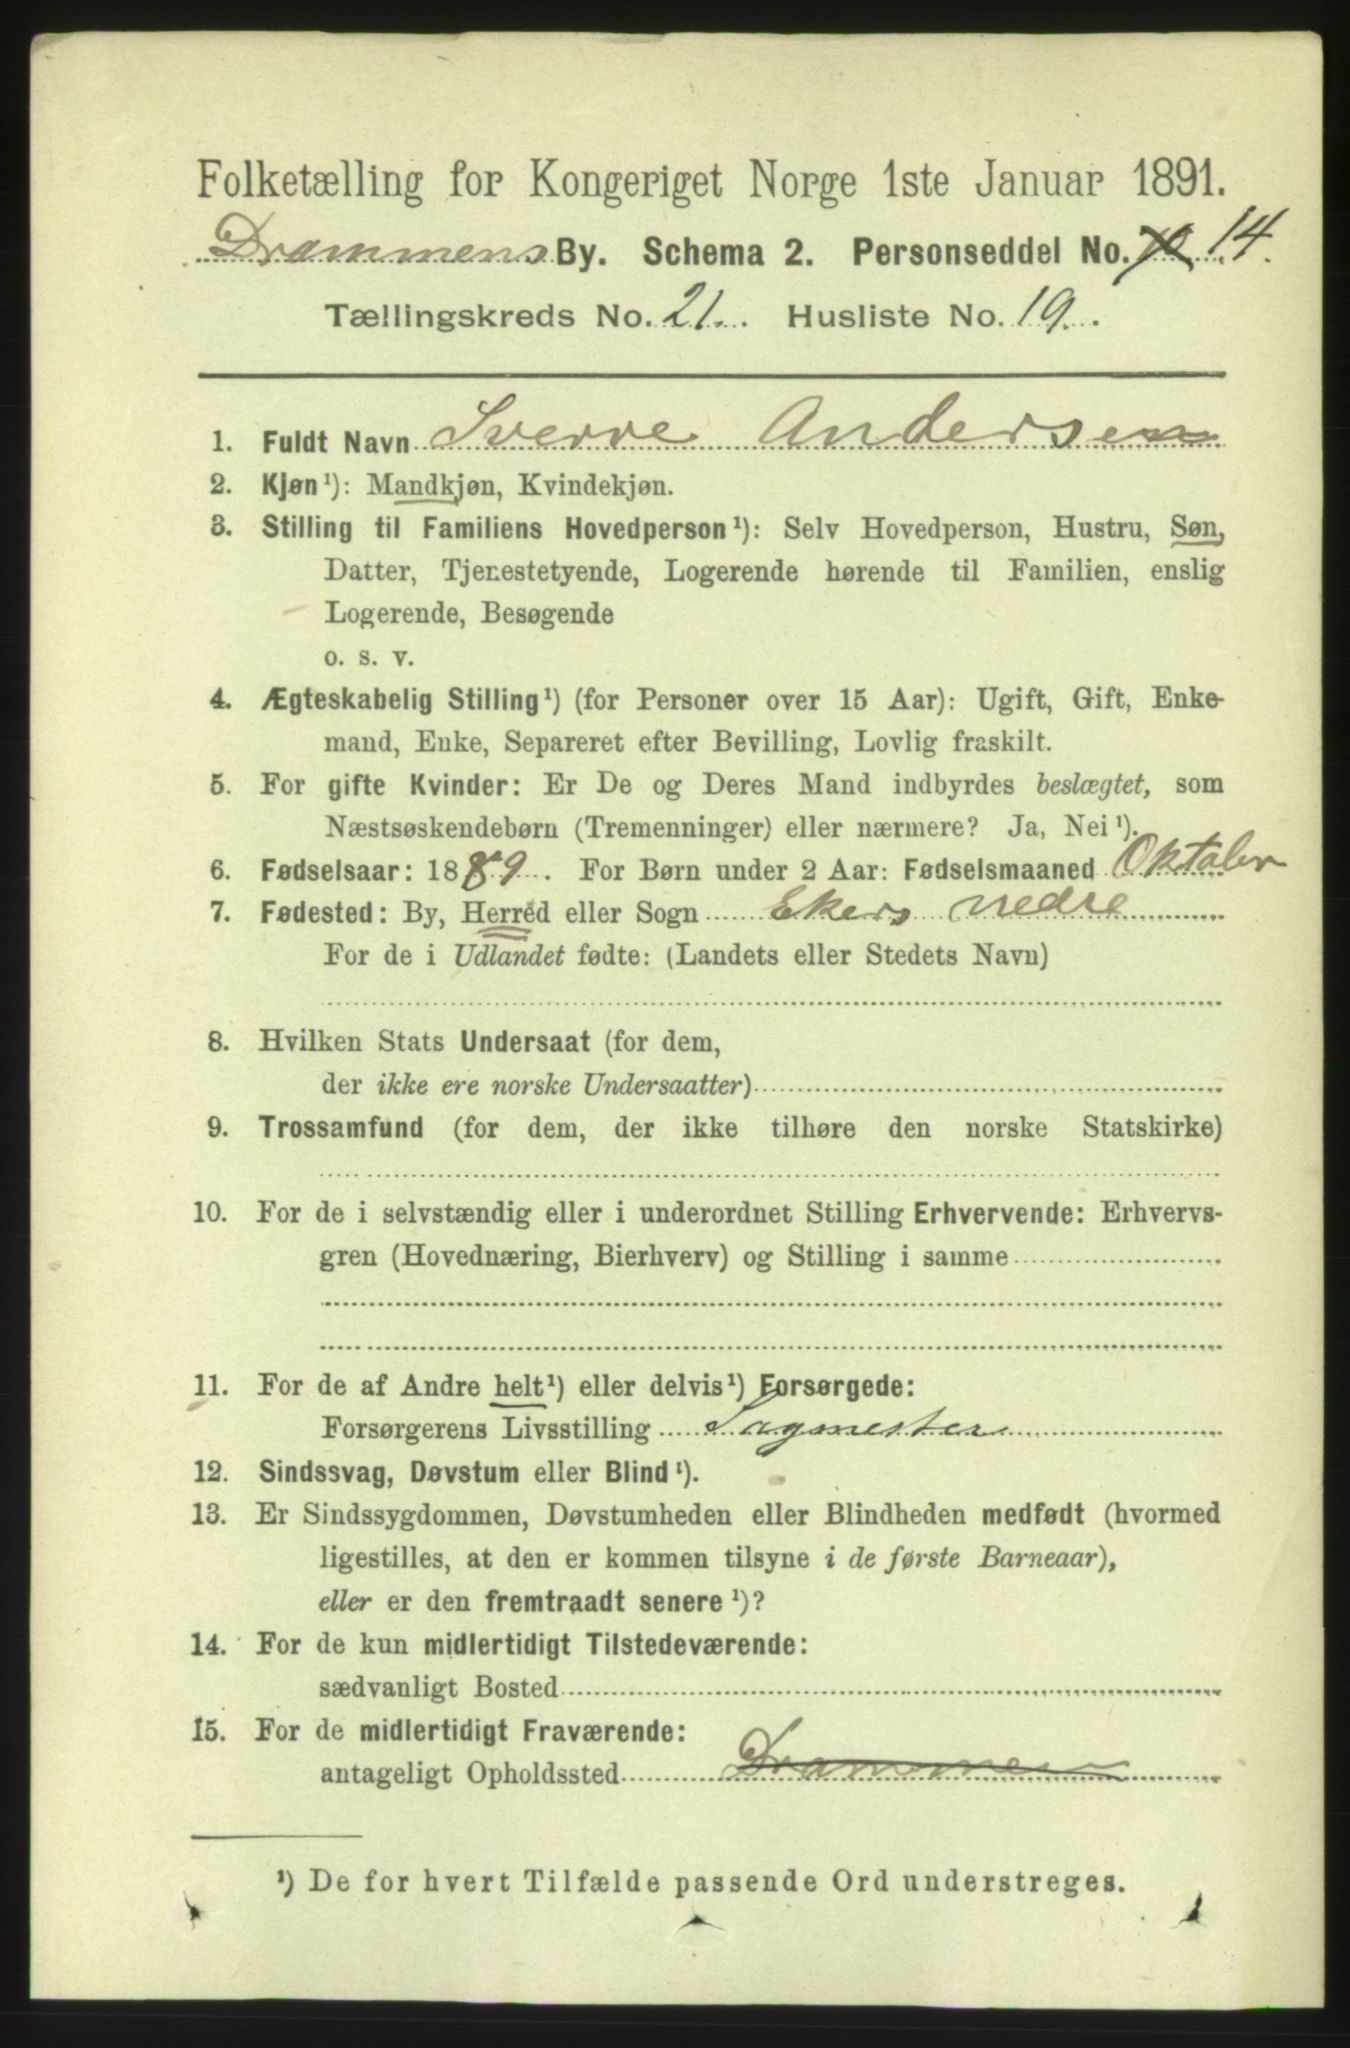 Folketælling for Kongeriget Norge 1ste Januar 1891.
Drammens By. Schema 2. Personseddel No. 14.
Tællingskreds No. 21. Husliste No. 19.
1. Fuldt Navn Sverre Andersen
2. Kjøn¹): Mandkjøn, Kvindekjøn.
3. Stilling til Familiens Hovedperson¹): Selv Hovedperson, Hustru, Søn,
Datter, Tjenestetyende, Logerende hørende til Familien, enslig
Logerende, Besøgende
o. s. v.
4. Ægteskabelig Stilling¹) (for Personer over 15 Aar): Ugift, Gift, Enke-
mand, Enke, Separeret efter Bevilling, Lovlig fraskilt.
5. For gifte Kvinder: Er De og Deres Mand indbyrdes beslægtet, som
Næstsøskendebørn (Tremenninger) eller nærmere? Ja, Nei¹).
6. Fødselsaar: 1889. For Børn under 2 Aar: Fødselsmaaned Oktober
7. Fødested: By, Herred eller Sogn Ekers nedre
For de i Udlandet fødte: (Landets eller Stedets Navn)
8. Hvilken Stats Undersaat (for dem,
der ikke ere norske Undersaatter)
9. Trossamfund (for dem, der ikke tilhøre den norske Statskirke)
10. For de i selvstændig eller i underordnet Stilling Erhvervende: Erhvervs-
gren (Hovednæring, Bierhverv) og Stilling i samme
11. For de af Andre helt¹) eller delvis¹) Forsørgede:
Forsørgerens Livsstilling Sagmester
12. Sindssvag, Døvstum eller Blind¹).
13. Er Sindssygdommen, Døvstumheden eller Blindheden medfødt (hvormed
ligestilles, at den er kommen tilsyne i de første Barneaar),
eller er den fremtraadt senere¹)?
14. For de kun midlertidigt Tilstedeværende:
sædvanligt Bosted
15. For de midlertidigt Fraværende:
antageligt Opholdssted Drammen
¹) De for hvert Tilfælde passende Ord understreges.